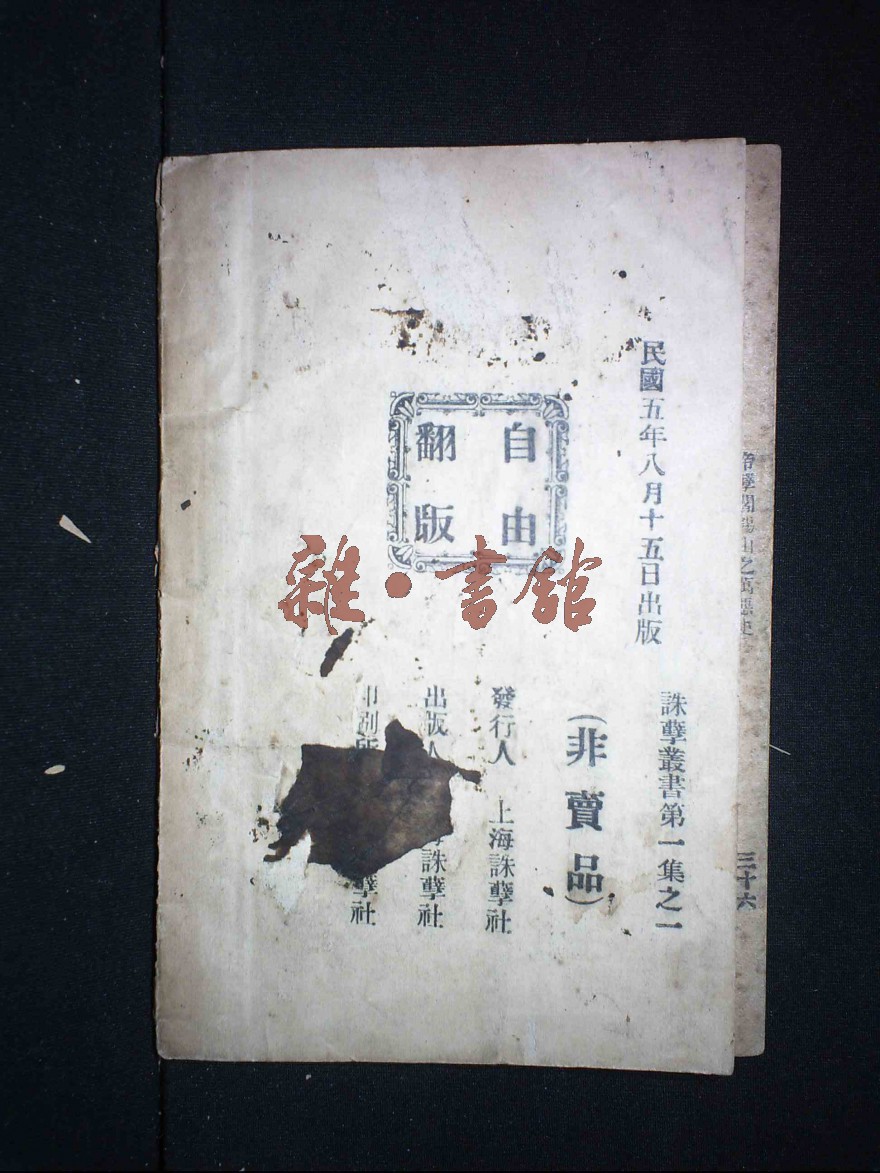 民國五年八月十五日出版
誅孽叢書第一集之一
自由
翻版
(非賣品)
發行人 上海誅孽社
出版人 海誅孽社
印刷所 孽社
雜·書館
三十六